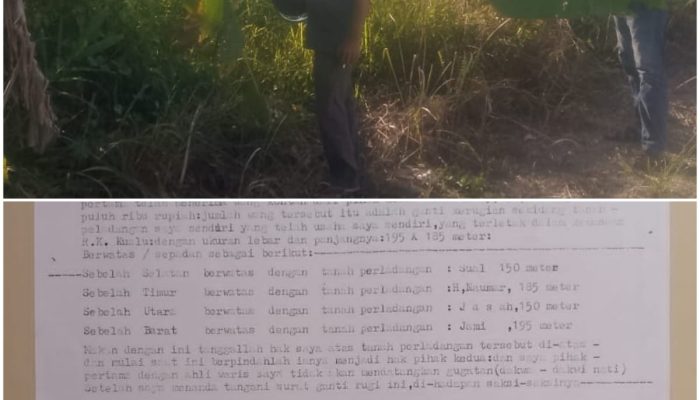 pertama telah menerima wang kontan dari pihak
puluh ribu rupiah:jumlah wang tersebut itu adalah ganti merugian sebidang tanah -
peladangan saya sendiri yang telah usaha saya sendiri,yang terletak dalam
R.K. Kualu:dengan ukuran lebar dan panjangnya:195 X 185 meter:
Berwatas / sepadan sebagai berikut:
Sebelah Selatan berwatas dengan tanah perladangan : Sual 150 meter
Sebelah Timur berwatas dengan tanah perladangan :H,Naumar, 185 meter
Sebelah Utara berwatas dengan tanah perladangan : J a s ah,150 meter
Sebelah Barat berwatas dengan tanah perladangan : Jami ,195 meter
Makan dengan ini tanggallah hak saya atas tanah perladangan tersebut di-atas -
dan mulai saat ini berpindahlah ianya menjadi hak pihak kedua:dan saya pihak -
pertama dengan ahli waris saya tidak akan mendatangkan gugatan(dakwa - dakwi nati)
Setelah saya menanda tangani surat ganti rugi ini,di-hadapan saksi-saksinya